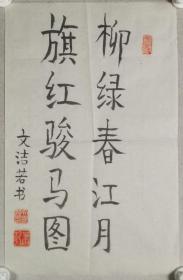 柳绿春江月
旗红骏马图
文洁若书